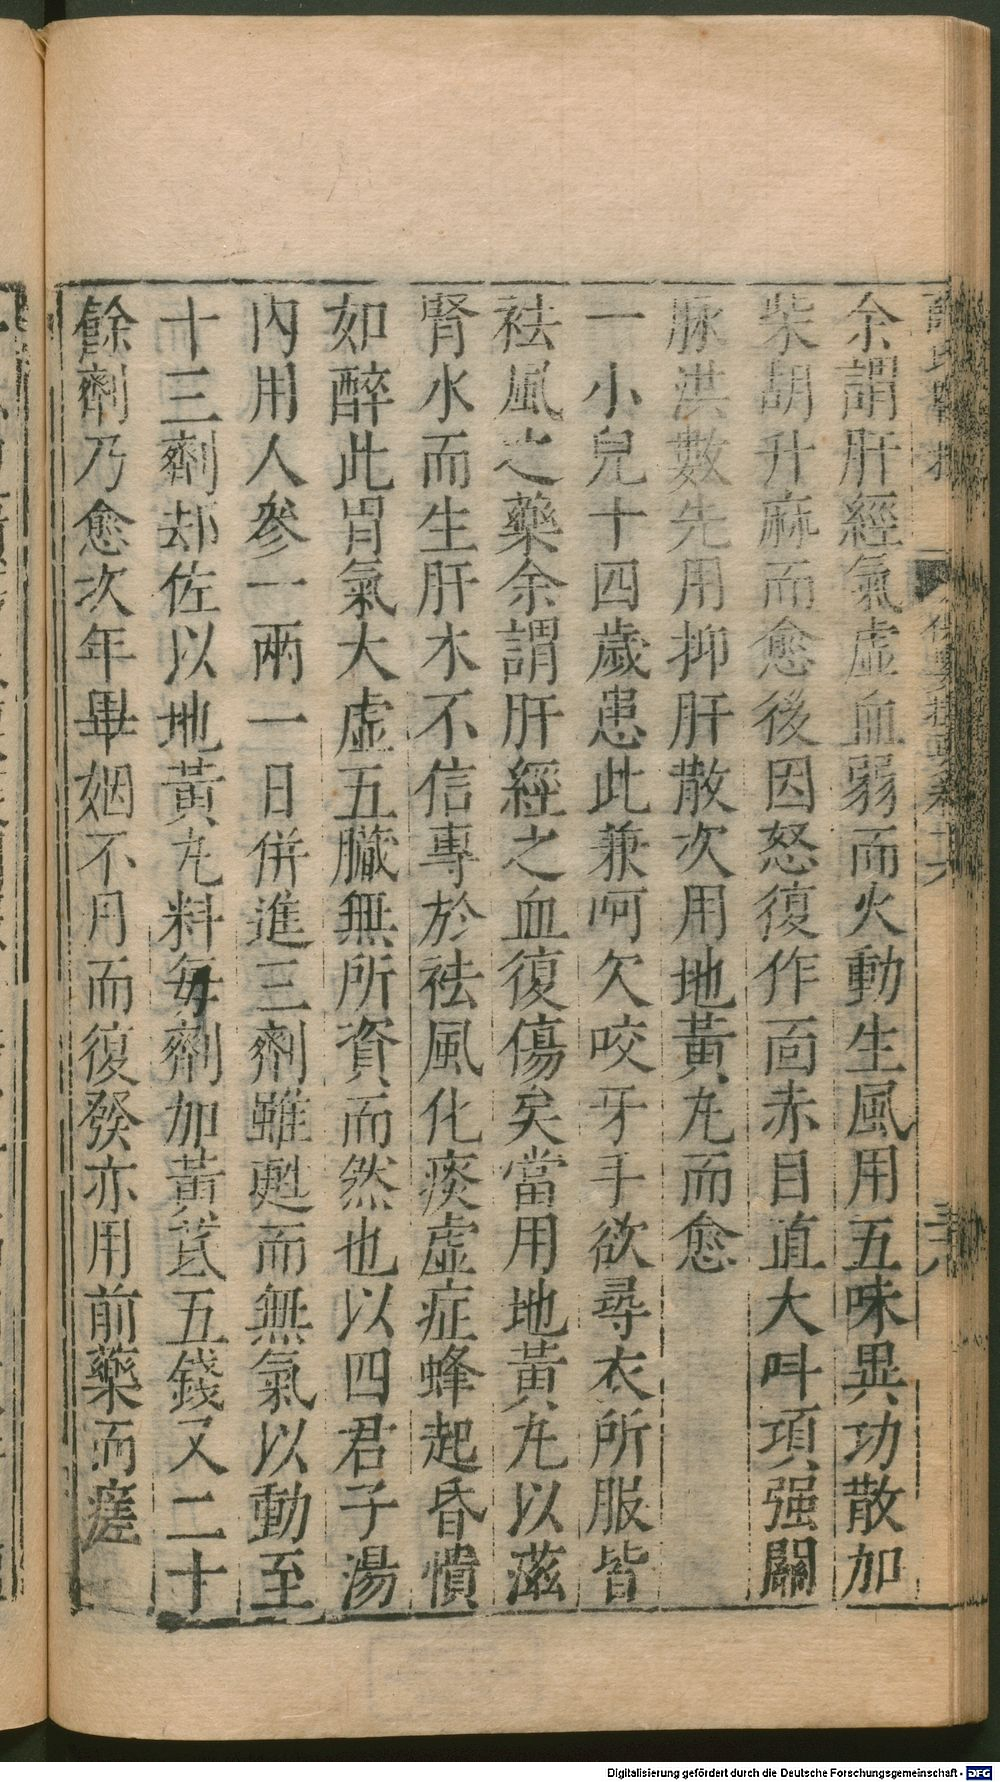 余謂肝經氣虛血弱而火動生風用五味異功散加
柴胡升麻而愈後因怒復作面赤目直大呌項强關
脉洪數先用抑肝散次用地黃𠀋而愈
一小兒十四歲患此兼呵欠咬牙手欲尋衣所服皆
祛風之藥余謂肝經之血復傷矣當用地黃𠀋以滋
腎水而生肝木不信專於祛風化痰虛症蜂起昏憒
如醉此胃氣大虛五臟無所資而然也以四君子湯
內用人參一兩一日併進三劑雖甦而無氣以動至
十三劑却佐以地黃𠀋料每劑加黃芪五錢又二十
餘劑乃愈次年畢姻不月而復發亦用前藥而瘥
Digitalisierung gefördert durch die Deutsche Forschungsgemeinschaft - DFG